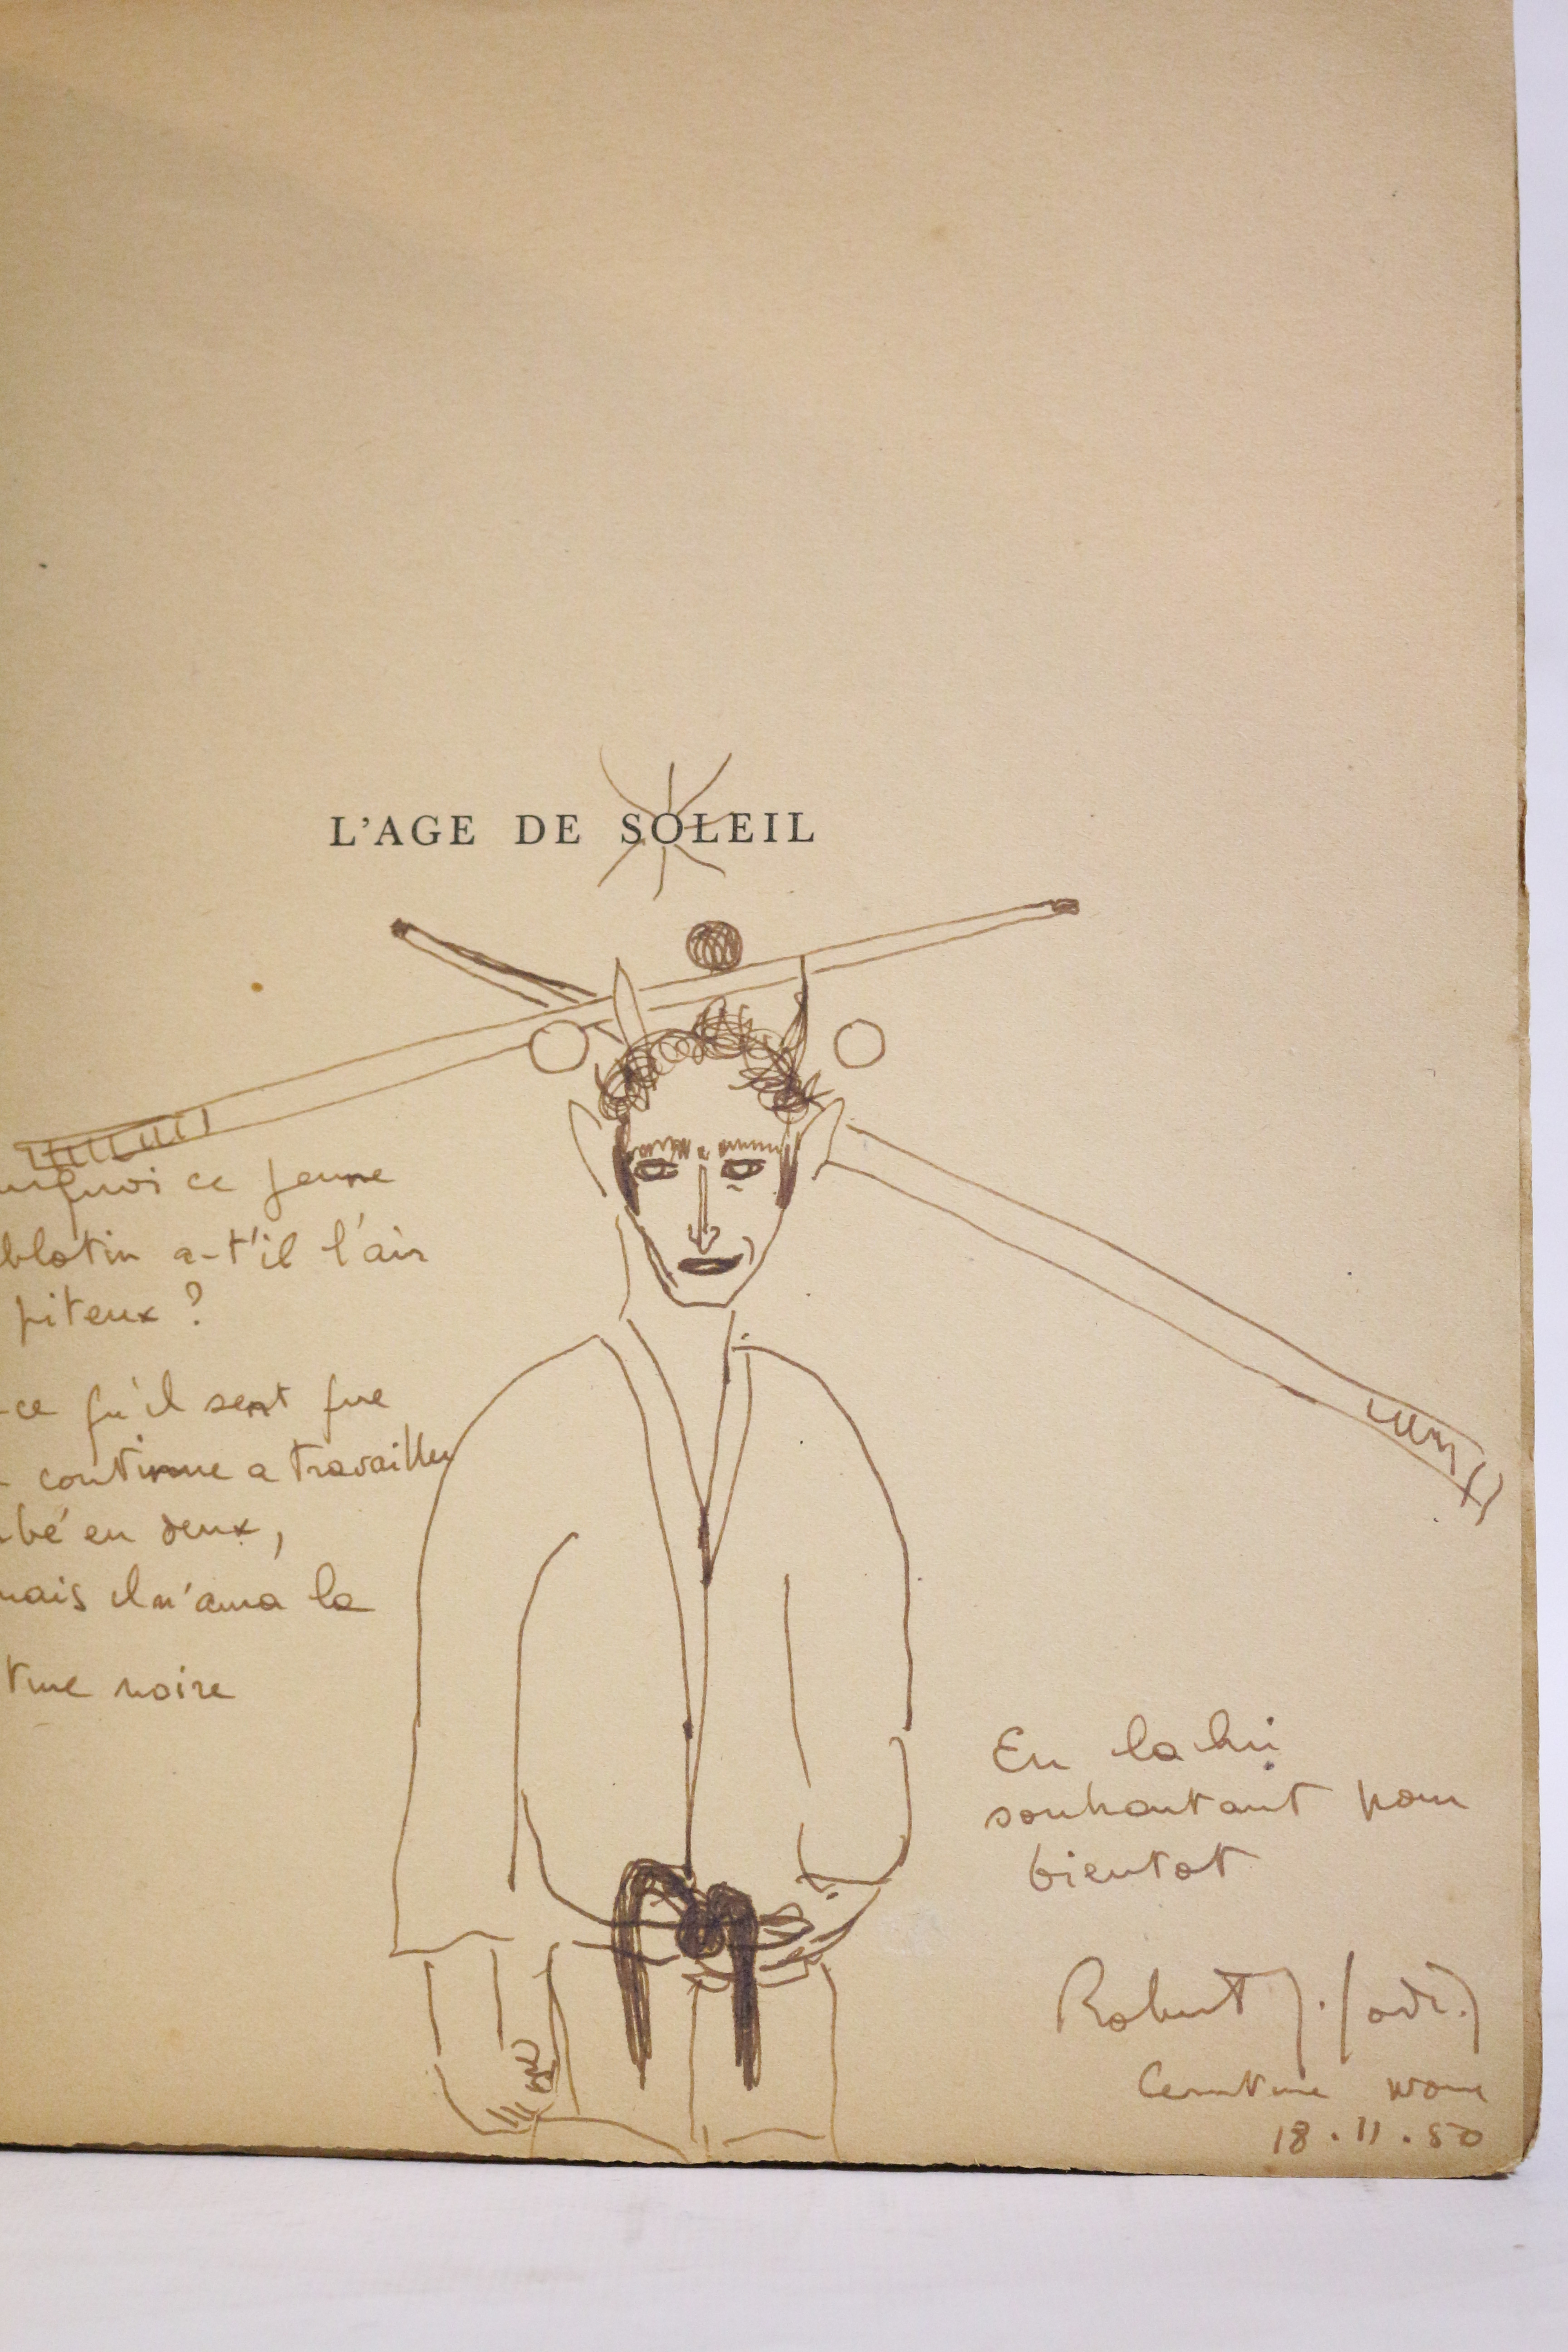 L'AGE DE SOLEIL
urquoi ce jeune
blotin a-t'il l'air
piteux ?
-ce qu'il sent que
continue a travailler
bé en deux,
mais il n'aura la
ture noire
En la lui
souhaitant pour
bientot
Robert J. Godet
Ceinture noire
18.11.50